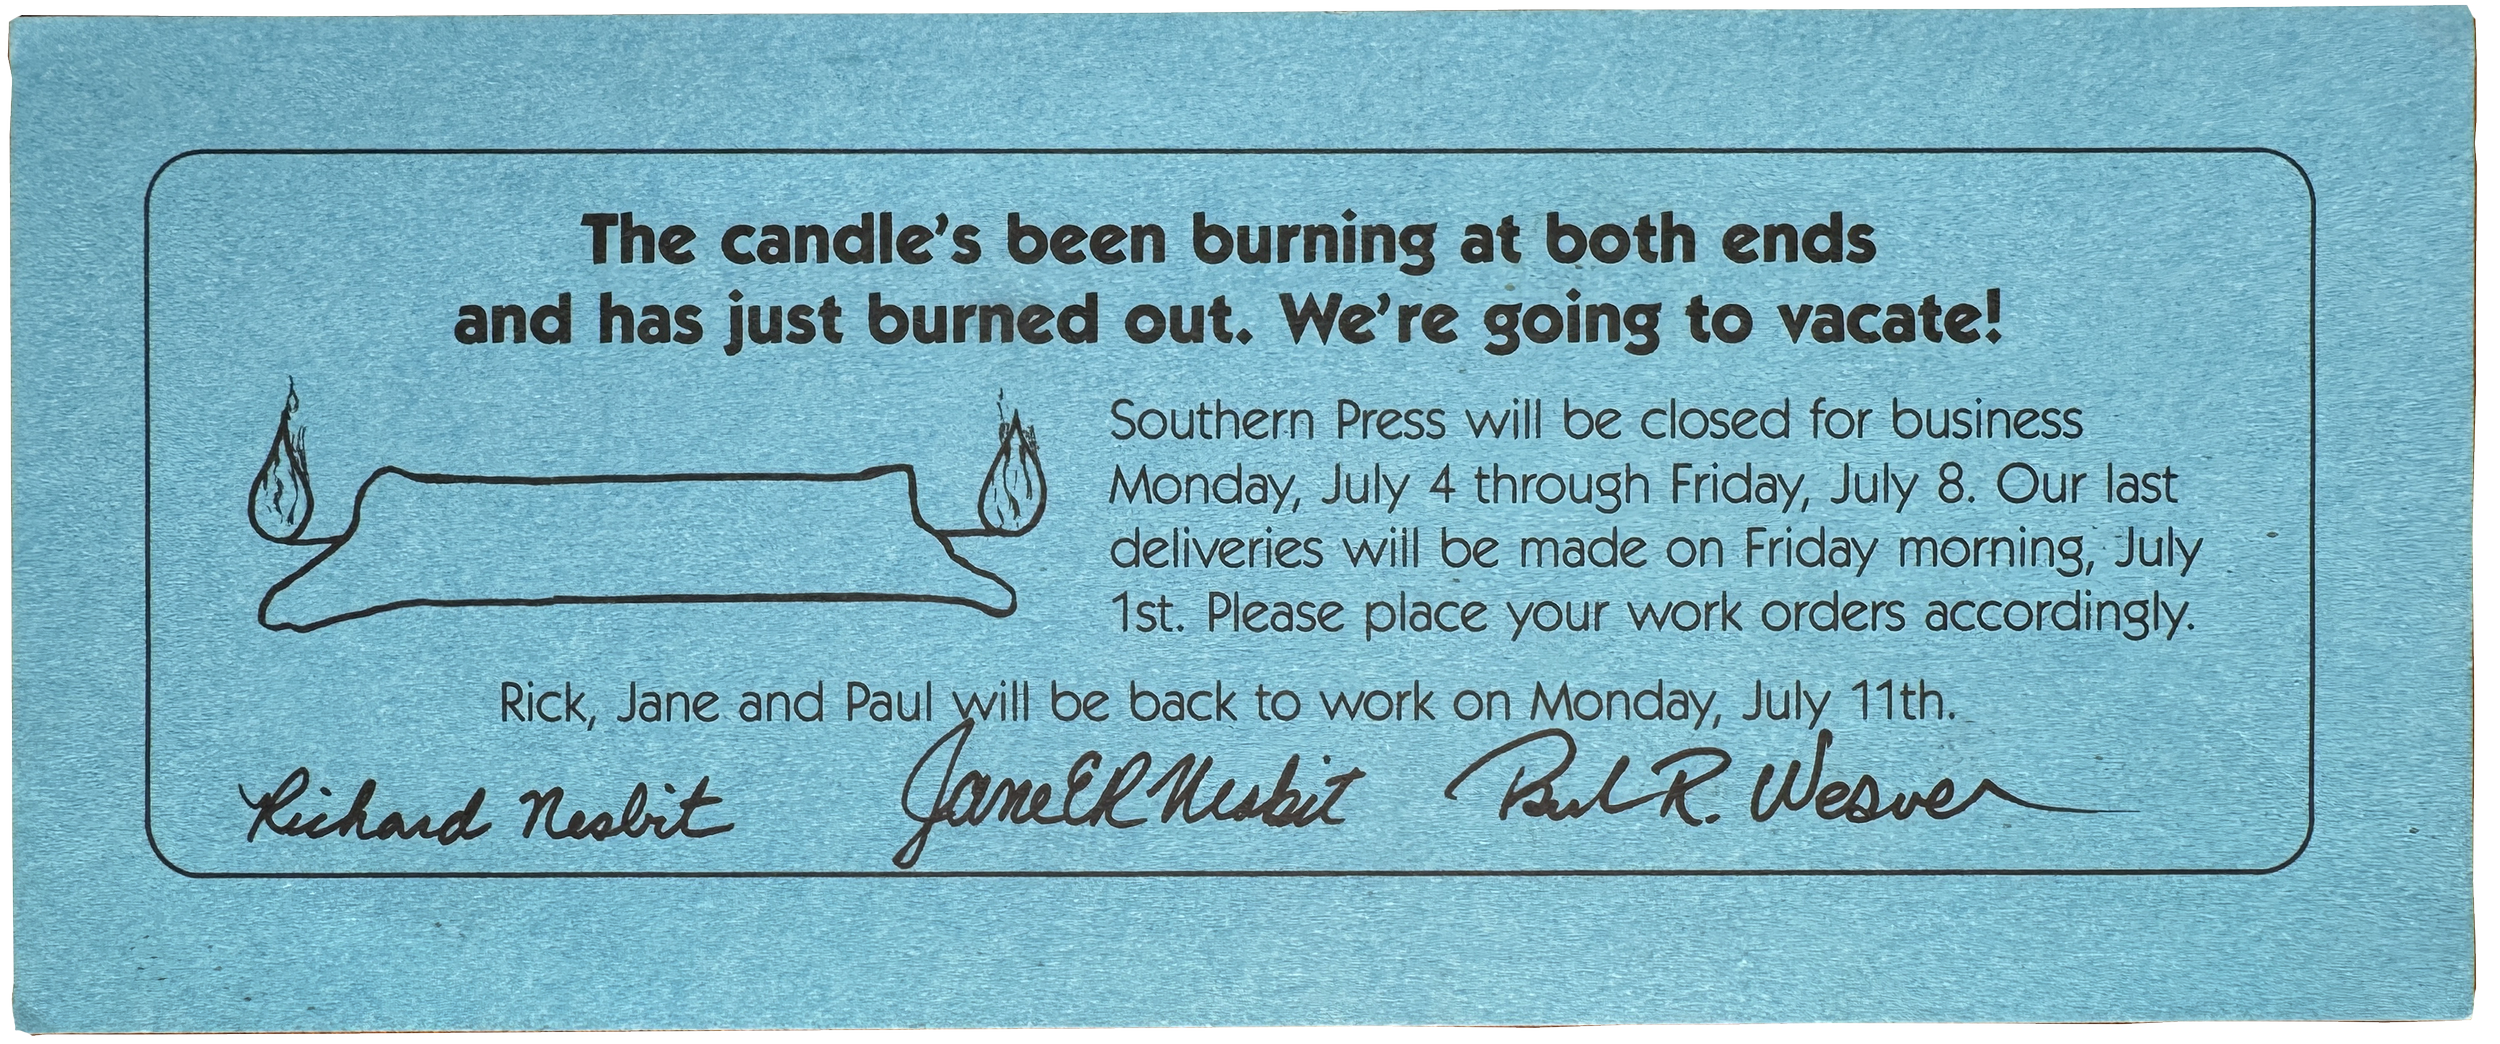 The candle's been burning at both ends
and has just burned out. We're going to vacate!
Southern Press will be closed for business
Monday, July 4 through Friday, July 8. Our last
deliveries will be made on Friday morning, July
1st. Please place your work orders accordingly.
Rick, Jane and Paul will be back to work on Monday, July 11th.
Richard Nesbit
Jane ER Nesbit
Paul R. Weaver